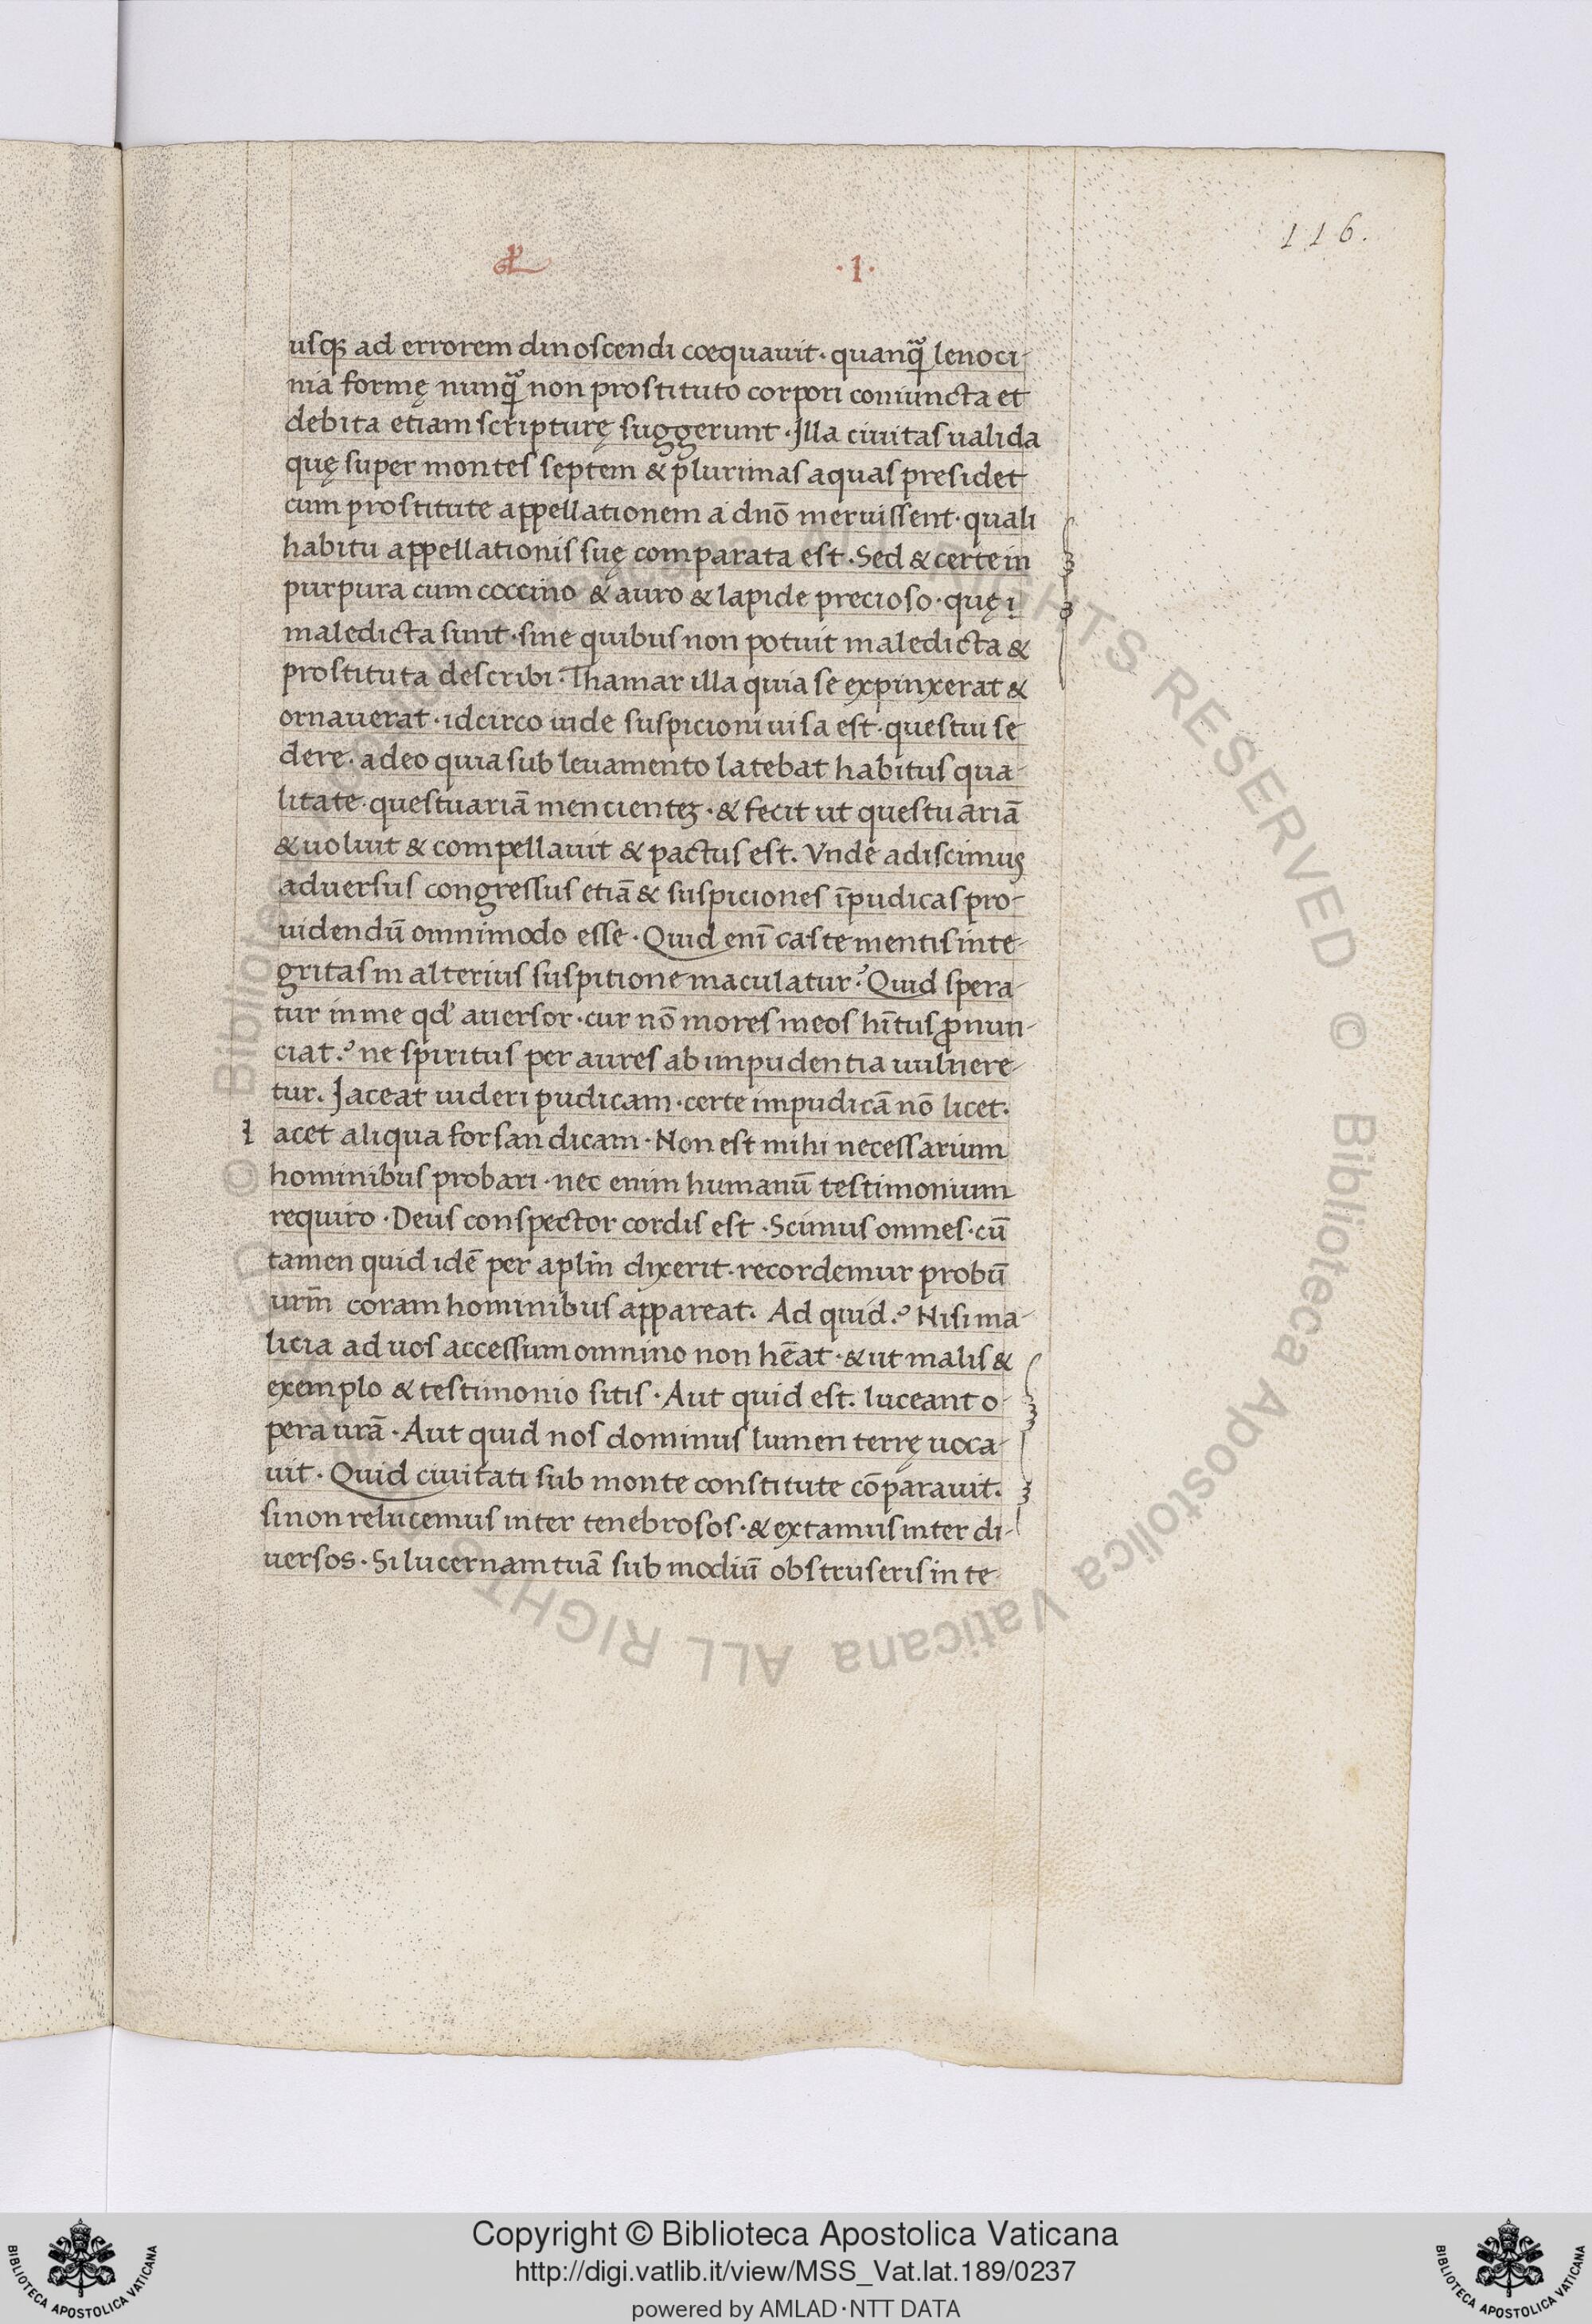 116.
·1·
usq; ad errorem dinoscendi coequauit· quanq̃ lenoci-
nia formę nunq̃ non prostituto corpori coniuncta et
debita etiam scripturę suggerunt· Illa ciuitas ualida
quę super montes septem & plurimas aquas presidet
cum prostitute appellationem a dno᷑ meruissent· quali
habitu appellationis suę comparata est· Sed & certe in
purpura cum coccino & auro & lapide precioso· quę i
maledicta sunt· sine quibus non potuit maledicta &
prostituta describi· Thamar illa quia se expinxerat &
ornauerat· idcirco iude suspicioni uisa est· questui se
dere· adeo quia sub leuamento latebat habitus qua-
litate· questuariā mencientꝫ· & fecit ut questuariā
& uoluit & compellauit & pactus est. Vnde adiscimus
aduersus congressus etiā & suspiciones īpudicas pro-
uidendū omnimodo esse· Quid enī caste mentis inte-
gritas in alterius suspitione maculatur? Quid spera-
tur in me qd' auersor· cur nō mores meos hītus ꝓnun-
ciat? ne spiritus per aures ab impudentia uulnere-
tur. Jaceat uideri pudicam· certe impudicā nō licet.
l acet aliqua forsan dicam· Non est mihi necessarium
hominibus probari· nec enim humanū testimonium
requiro· Deus conspector cordis est· Scimus omnes· cū
tamen quid idē per aplm̄ dixerit· recordemur probū
urm̄ coram hominibus appareat. Ad quid? Nisi ma-
licia ad uos accessum omnino non hēat· & ut malis &
exemplo & testimonio sitis· Aut quid est. luceant o-
pera urā· Aut quid nos dominus lumen terrę uoca-
uit· Quid ciuitati sub monte constitute cōparauit.
si non relucemus inter tenebrosos· & extamus inter di-
uersos· Si lucernam tuā sub modiū obstruseris in te
© Biblioteca Apostolica Vaticana ALL RIGHTS RESERVED
Copyright © Biblioteca Apostolica Vaticana
http://digi.vatlib.it/view/MSS_Vat.lat.189/0237
powered by AMLAD·NTT DATA
BIBLIOTECA APOSTOLICA VATICANA
BIBLIOTECA APOSTOLICA VATICANA